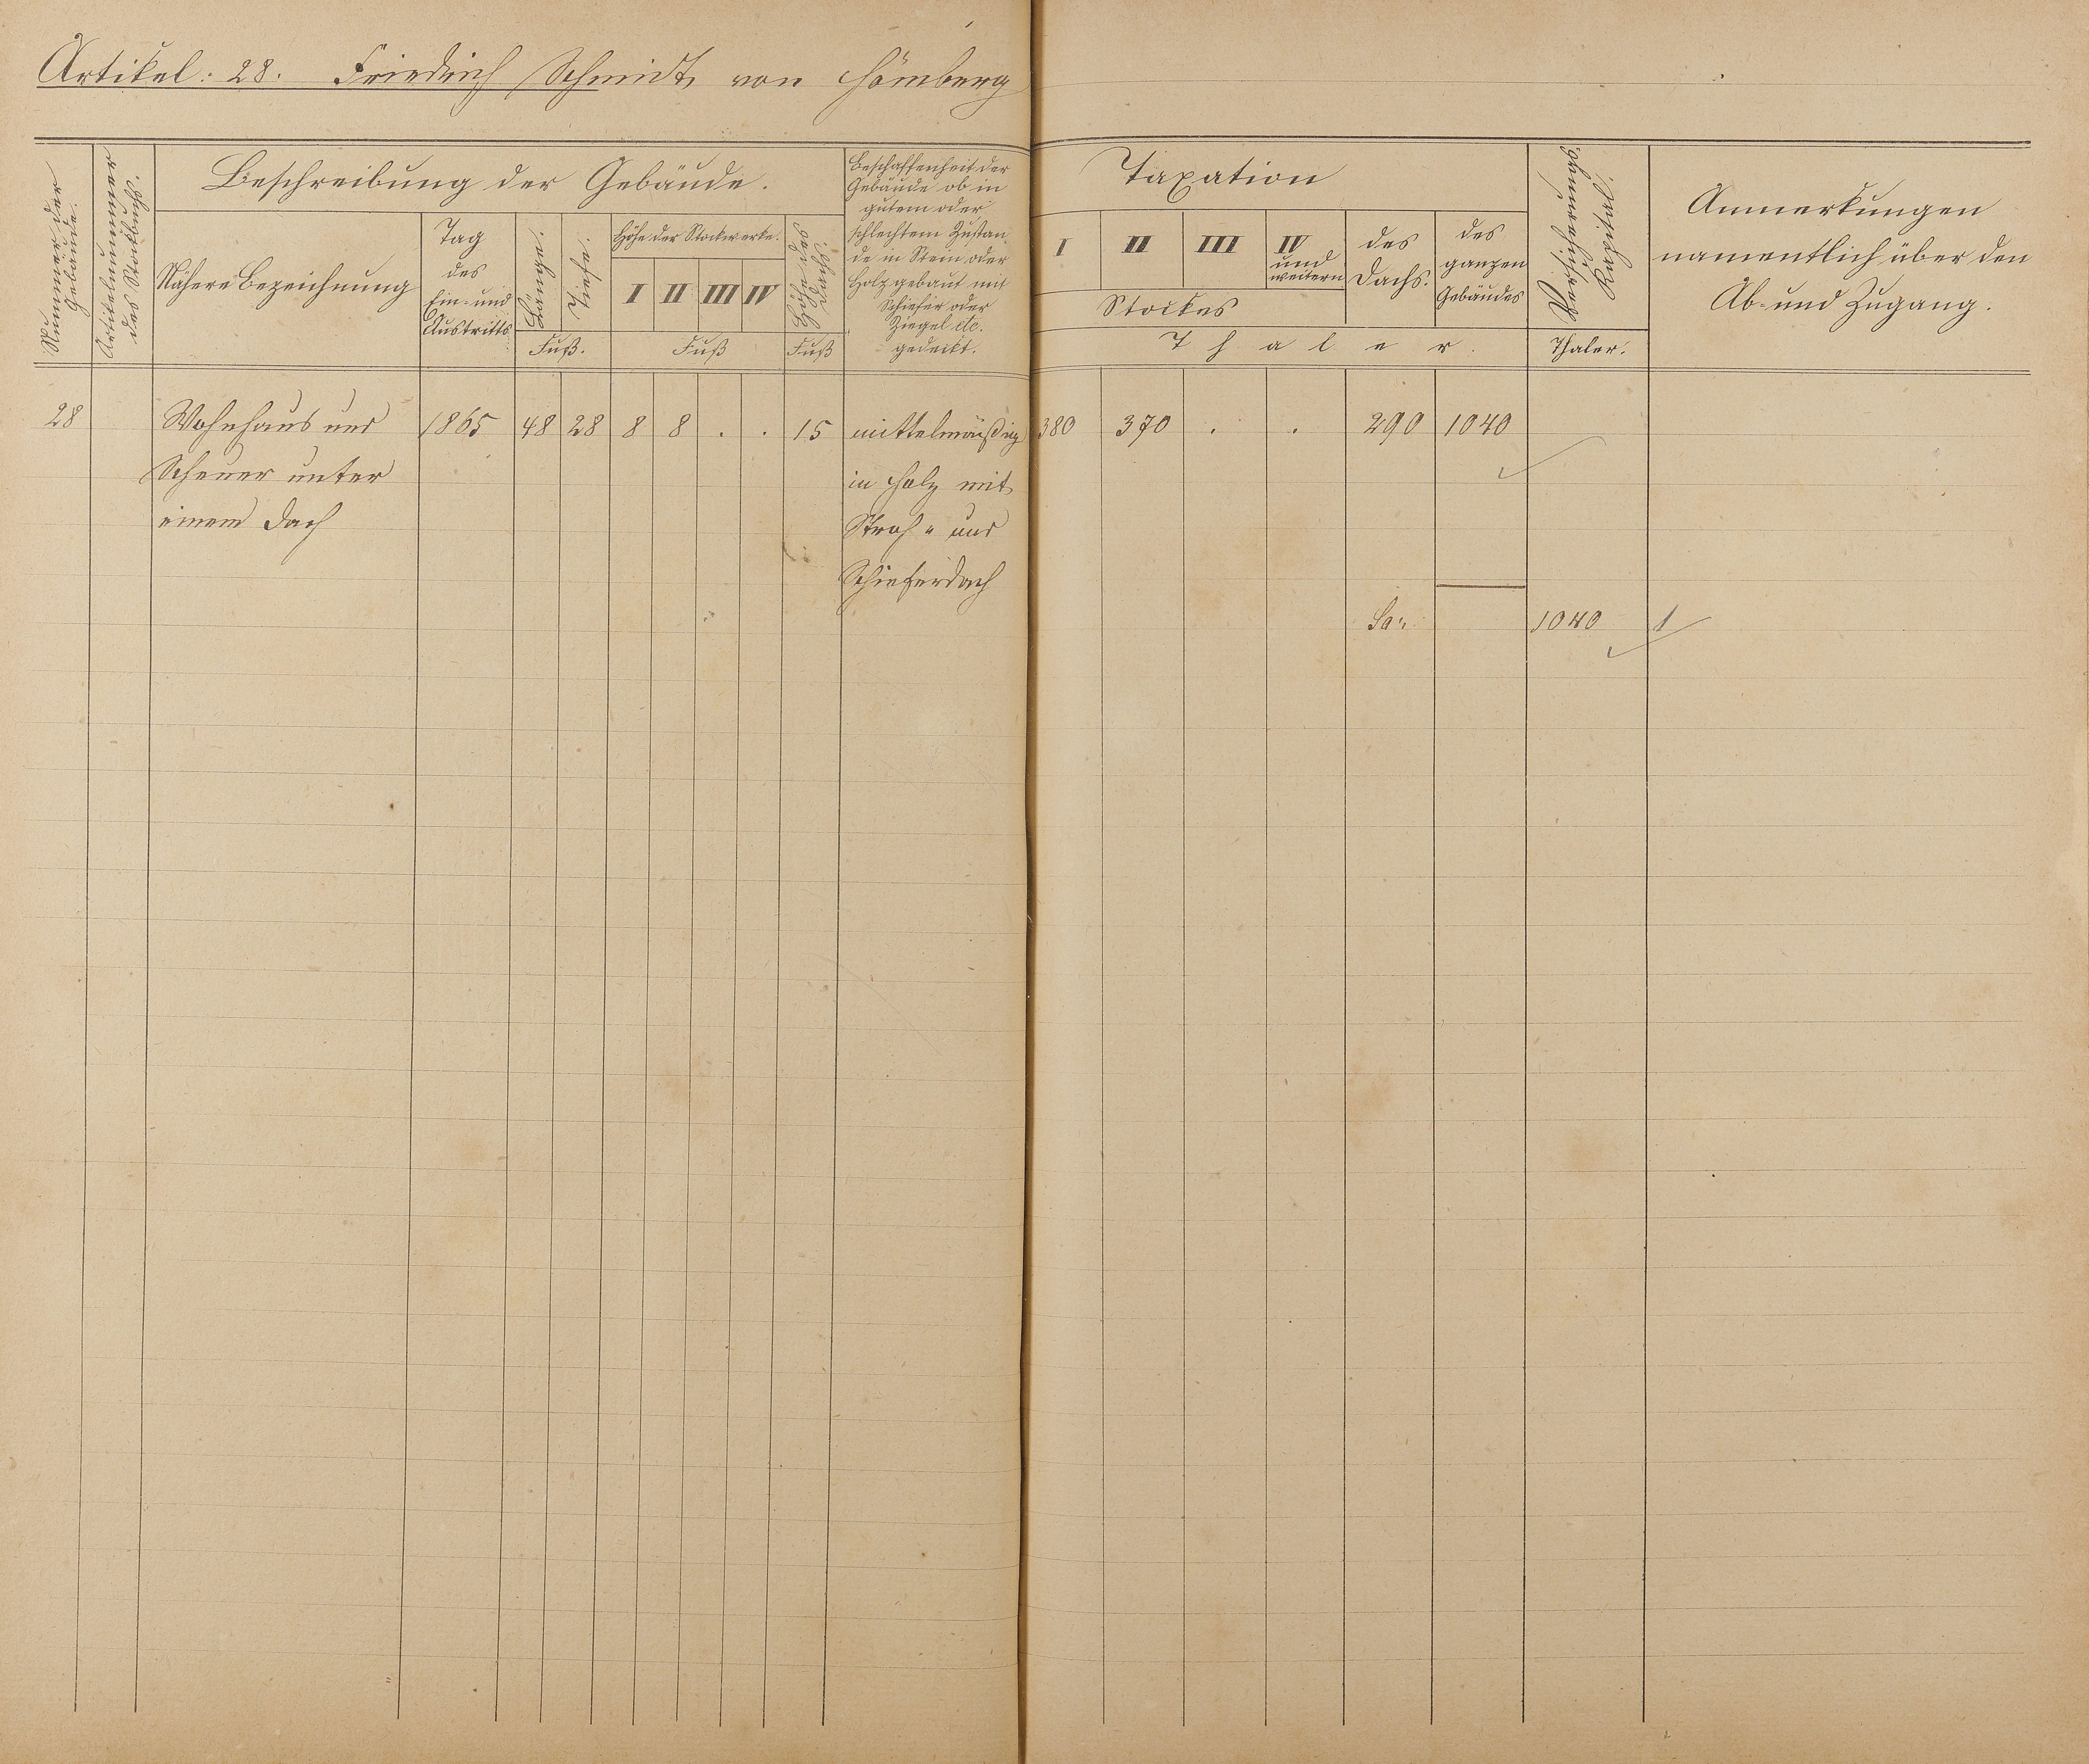 Artikel: 28. Friedrich Schmidt von Hömberg
Nummer der
Gebäude.
Artikelnummer
des Stockbuchs.
Beschreibung der Gebäude.
Nähere Bezeichnung
Tag
des
Ein- und
Austritts
Länge.
Tiefe.
Fuß.
Höhe der Stockwerke.
I II III IV
Fuß
Höhe des
Dachs.
Fuß
Beschaffenheit der
Gebäude ob in
gutem oder
schlechtem Zustan
de in Stein oder
Holz gebaut mit
Schiefer oder
Ziegel etc.
gedeckt.
Taxation
I II III IV
und
weitern
Stockes
des
Dachs.
des
ganzen
Gebäudes
Thaler.
Versicherungs
Thaler.
Anmerkungen
namentlich über den
Ab- und Zugang.
28 Wohnhaus und 1865 48 28 8 8 . . 15 mittelmäßig 380 370 . . 290 1040
Scheuer unter in Holz mit
einem Dach Stroh- und
Schieferdach
Sa. 1040 1